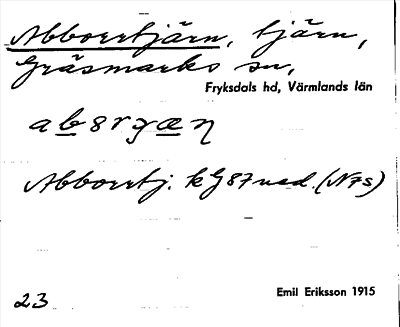 Abborrtjärn, tjärn,
Gräsmarks sn,
Fryksdals hd, Värmlands län
Abborrtj. kG 87 ned. (N7S)
Emil Eriksson 1915
23